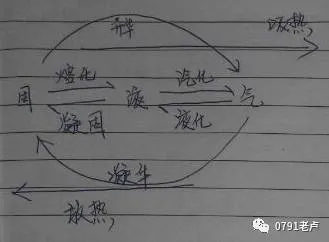 升华
吸热
熔化
汽化
固
液
气
凝固
液化
凝华
放热
0791老卢